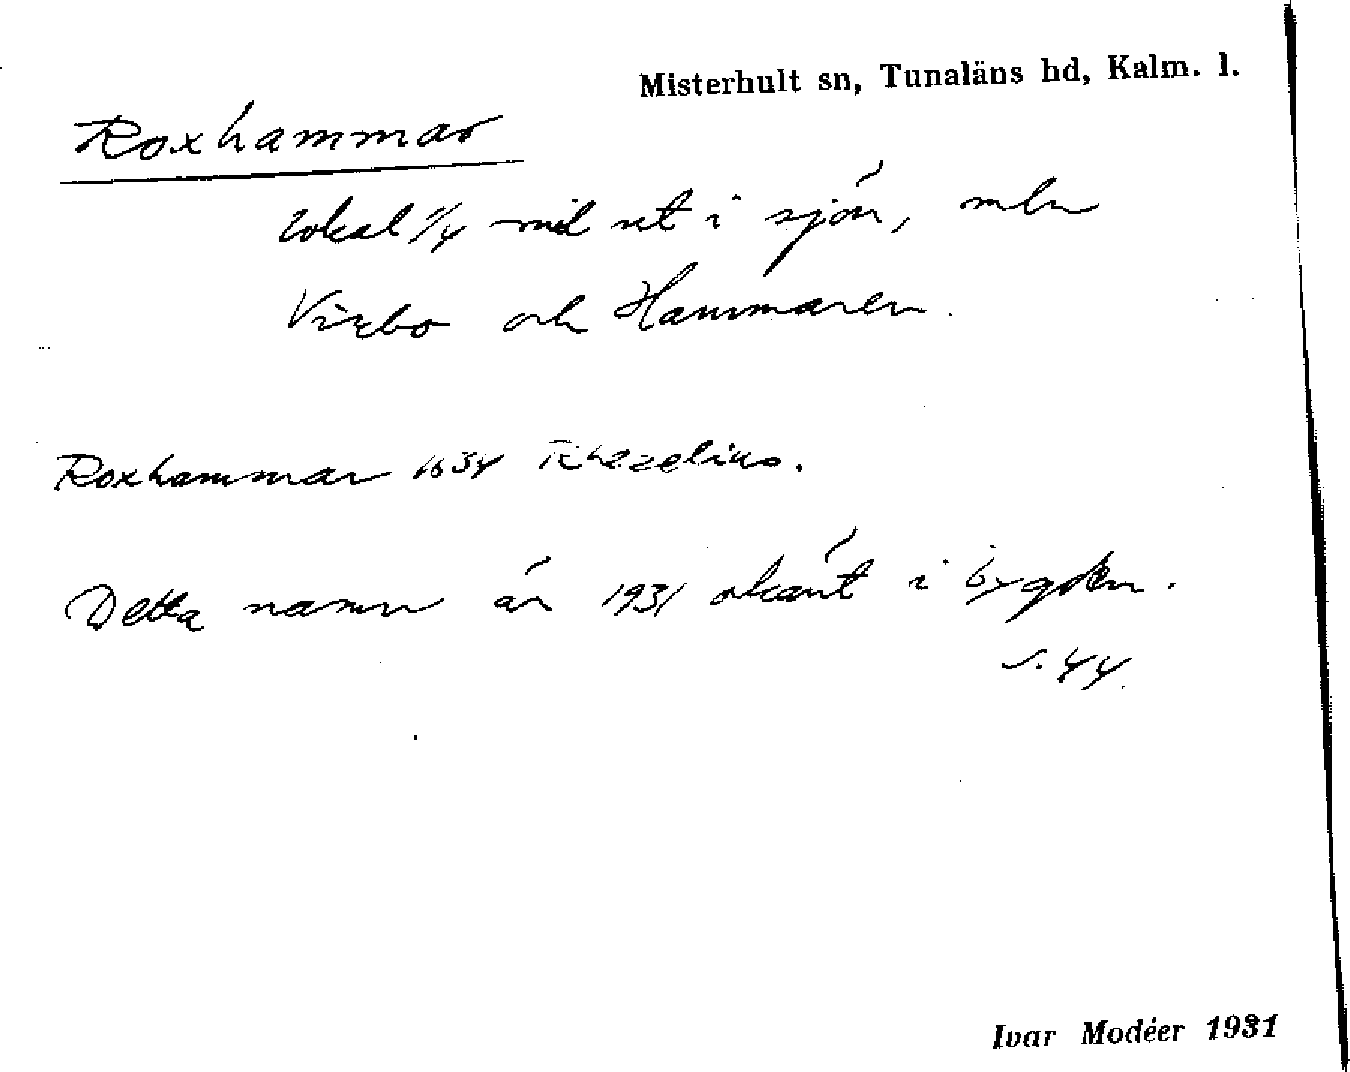 Misterhult sn, Tunaläns hd, Kalm. l.
Roxhammar
lokal 1/4 mil ut i sjön, mln
Virbo och Hammaren.
Roxhammar 1634 Rhezelius.
Detta namn är 1931 okänt i bygden.
s. 44.
Ivar Modéer 1931